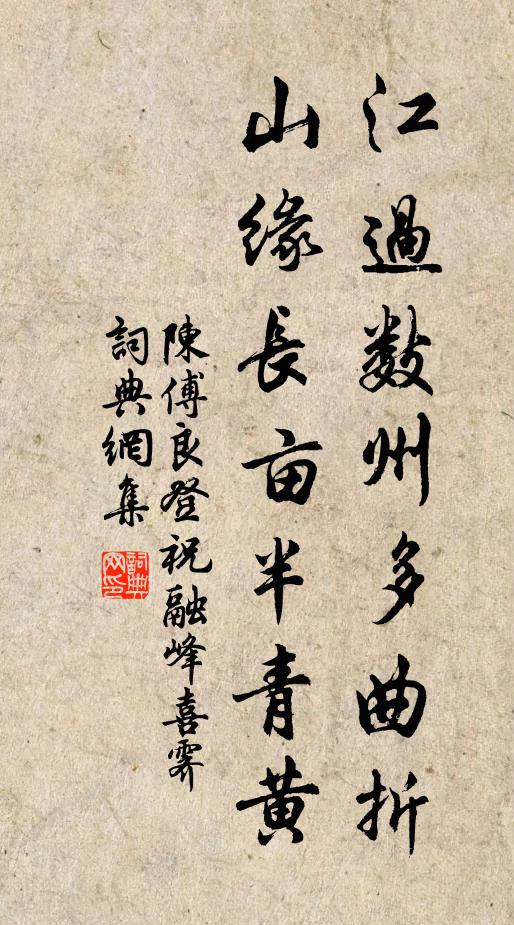 江過数州多曲折
山緣長亩半青黄
陳傅良登祝融峰喜霽
詞典網集
詞典网印